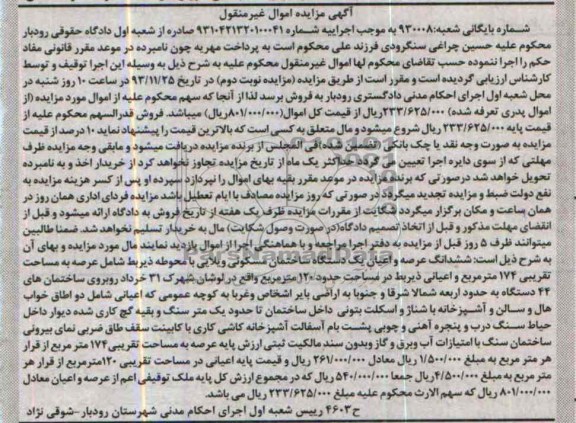 آگهی مزایده اموال غیرمنقول
شماره بایگانی شعبه: ۹۳۰۰۰۸ به موجب اجراییه شماره ۹۳۱۰۴۲۱۳۲۰۱۰۰۰۴۱ صادره از شعبه اول دادگاه حقوقی رودبار
محکوم علیه حسین چراغی سنگرودی فرزند علی محکوم است به پرداخت مهریه چون نامبرده در موعد مقرر قانونی مفاد
حکم را اجرا ننموده حسب تقاضای محکوم لها اموال غیرمنقول محکوم علیه به شرح ذیل به وسیله این اجرا توقیف و توسط
کارشناس ارزیابی گردیده است و مقرر است از طریق مزایده (مزایده نوبت دوم) در تاریخ ۹۳/۱۱/۲۵ در ساعت ۱۰ روز شنبه در
محل شعبه اول اجرای احکام مدنی دادگستری رودبار به فروش برسد لذا از آنجا که سهم محکوم علیه از اموال مورد مزایده (از
اموال پدری تعرفه شده) ۲۳۳/۶۲۵/۰۰۰ ریال از قیمت کل اموال(۸۰۱/۰۰۰/۰۰۰ریال) میباشد. فروش قدرالسهم محکوم علیه از
قیمت پایه ۲۳۳/۶۲۵/۰۰۰ ریال شروع میشود و مال متعلق به کسی است که بالاترین قیمت را پیشنهاد نماید ۱۰ درصد از قیمت
مزایده به صورت وجه نقد یا چک بانکی (تضمین شده) فی المجلس از برنده مزایده دریافت میشود و مابقی وجه مزایده ظرف
مهلتی که از سوی دایره اجرا تعیین می گردد حداکثر یک ماه از تاریخ مزایده تجاوز نخواهد کرد از خریدار اخذ و به نامبرده
تحویل خواهد شد درصورتی که برنده مزایده در موعد مقرر بقیه بهای اموال را نپردازد سپرده او پس از کسر هزینه مزایده به
نفع دولت ضبط و مزایده تجدید میگردد در صورتی که روز مزایده مصادف با ایام تعطیل باشد مزایده فردای اداری همان روز در
همان ساعت و مکان برگزار میگردد شکایت از مقررات مزایده ظرف یک هفته از تاریخ فروش به دادگاه ارائه میشود و قبل از
انقضای مهلت مذکور و قبل از اتخاذ تصمیم دادگاه(در صورت وصول شکایت) مال به خریدار تسلیم نخواهد شد. ضمنا طالبین
میتوانند ظرف ۵ روز قبل از مزایده به دفتر اجرا مراجعه و با هماهنگی اجرا از اموال بازدید نمایند مال مورد مزایده و بهای آن
به شرح ذیل است: ششدانگ عرصه و اعیان یک دستگاه ساختمان مسکونی ویلایی با محوطه ذیربط شامل عرصه به مساحت
تقریبی ۱۷۴ مترمربع و اعیانی ذیربط در مساحت حدود ۱۲۰ مترمربع واقع در لوشان شهرک ۳۱ خرداد روبروی ساختمان های
۴۴ دستگاه به حدود اربعه شمالا شرقا و جنوبا به اراضی بایر اشخاص وغربا به کوچه عمومی که اعیانی شامل دو اطاق خواب
هال و سالن و آشپزخانه با شناژ و اسکلت بتونی داخل ساختمان تا حدود یک متر سنگ و بقیه گچ کاری شده دیوار داخل
حیاط سنگ درب و پنجره آهنی و چوبی پشت بام آسفالت آشپزخانه کاشی کاری با کابینت سقف طاق ضربی نمای بیرونی
ساختمان سنگ با امتیازات آب وبرق و گاز وبدون سند مالکیت ثبتی ارزش پایه عرصه به مساحت تقریبی ۱۷۴ متر مربع از قرار
هر متر مربع به مبلغ ۱/۵۰۰/۰۰۰ ریال معادل ۲۶۱/۰۰۰/۰۰۰ ریال و قیمت پایه اعیانی در مساحت تقریبی ۱۲۰مترمربع از قرار هر
متر مربع به مبلغ ۴/۵۰۰/۰۰۰ریال جمعا ۵۴۰/۰۰۰/۰۰۰ ریال که در مجموع ارزش کل پایه ملک توقیفی اعم از عرصه و اعیان معادل
۸۰۱/۰۰۰/۰۰۰ ریال که سهم الارث محکوم علیه مبلغ ۲۳۳/۶۲۵/۰۰۰ ریال می باشد.
ح۴۶۰۳ رییس شعبه اول اجرای احکام مدنی شهرستان رودبار-شوقی نژاد